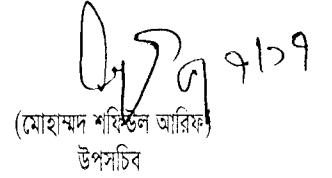 ৭/১৭
(মোহাম্মদ শফিউল আরিফ)
উপসচিব